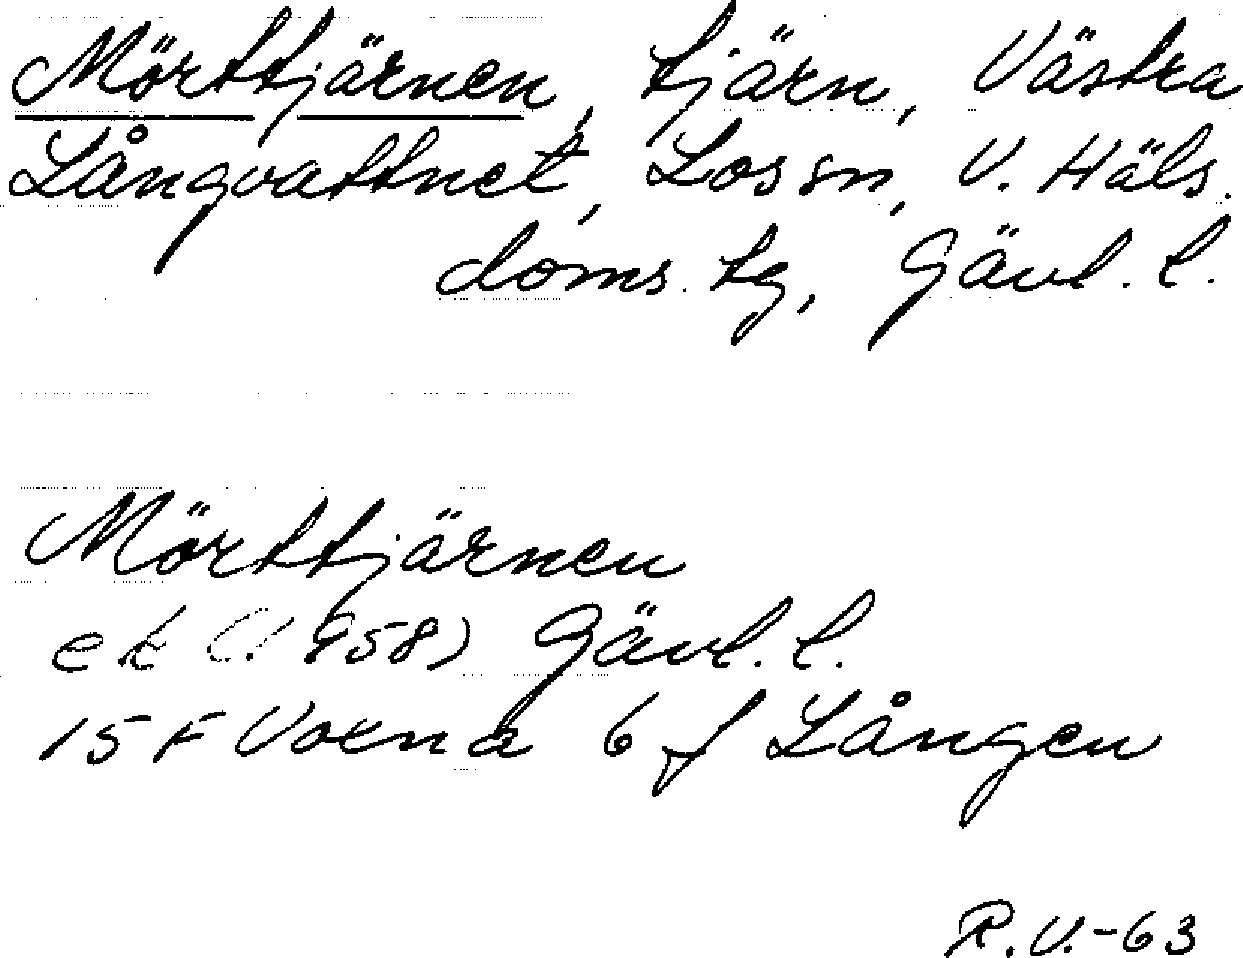 Mörttjärnen, tjärn, Västra
Långvattnet, Los sn, V. Häls.
doms. tg, Gävl. l.
Mörttjärnen
ek (1958) Gävl. l.
15 F Voxna 6 f Lången
R.V.-63